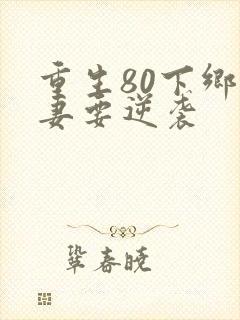 重生80下乡
妻要逆袭
巩春晓